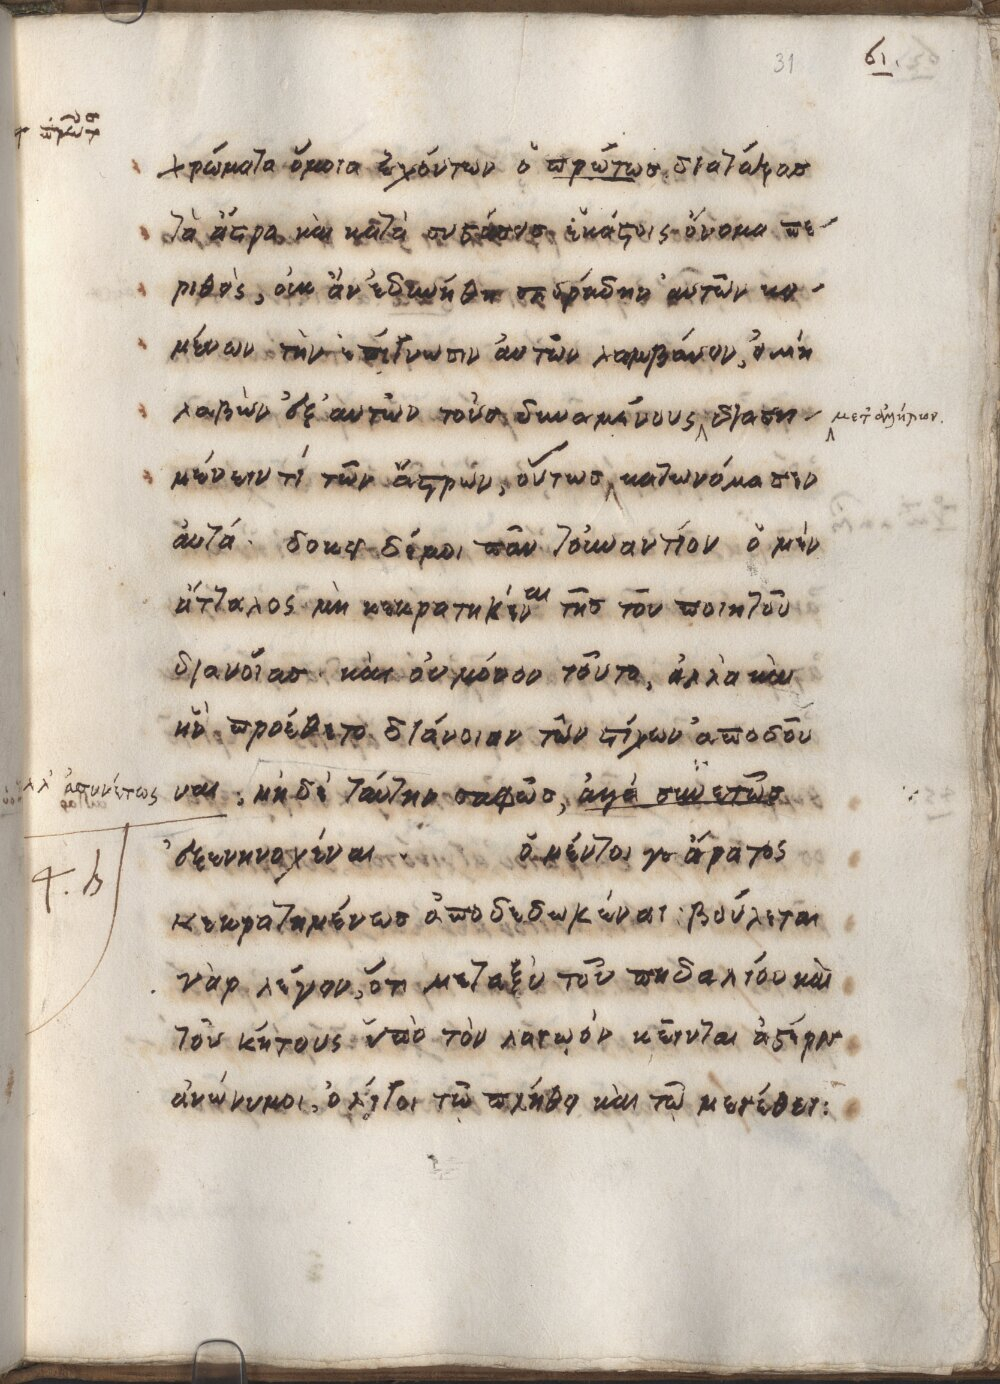 31
61.
χρώματα ὅμοια ἐχόντων ὁ πρῶτος διατάξας
τὰ ἄστρα καὶ κατὰ ἑκάστοις ὄνομα πε-
ριθεὶς, οὐκ ἂν ἐδυνήθη αὐτῶν κει-
μένων τὴν ἐπίγνωσιν αὐτῶν λαμβάνειν,
λαβὼν ἐξ αὐτῶν τοὺς δυναμένους διαση-
μετ' ἀλλήλων.
μαίνειν τί τῶν ἄστρων, οὕτως κατωνόμασεν
αὐτά. δοκεῖ δέ μοι πᾶν τοὐναντίον ὁ μὲν
ἄτταλος μὴ κεκρατηκέναι τῆς τοῦ ποιητοῦ
διανοίας. καὶ οὐ μόνον τοῦτο, ἀλλὰ καὶ
ἣν προέθετο διάνοιαν τῶν στίχων ἀποδοῦ
ἀσυνέτως
ναι, μηδὲ ταύτην σαφῶς,
ἐξενηνοχέναι. ὁ μέντοι γε ἄρατος
κεκρατημένως ἀποδεδωκέναι. βούλεται
γὰρ λέγειν, ὅτι μεταξὺ τοῦ πηδαλίου καὶ
τοῦ κήτους ὑπὸ τὸν λαγωὸν κεῖνται ἀστέρες
ἀνώνυμοι, ὀλίγοι τῷ πλήθει καὶ τῷ μεγέθει: